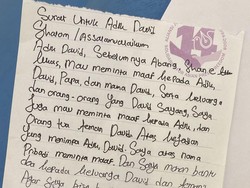 Surat Untuk Adik David
Shalom / Assalamualaikum
Adik David, Sebelumnya Abang, Shane
Lukas, mau meminta maaf kepada Adik,
David, Papa, dan mama David, Serta keluarga
dan orang-orang yang David Sayang, Saya
Juga mau meminta maaf kepada Adik, dan
Orang tua teman David Atas kejadian
yang menimpa Adik, David. Saya atas nama
Pribadi meminta maaf. Dan Saya mohon
kepada keluarga David dan
Agar Saya bisa